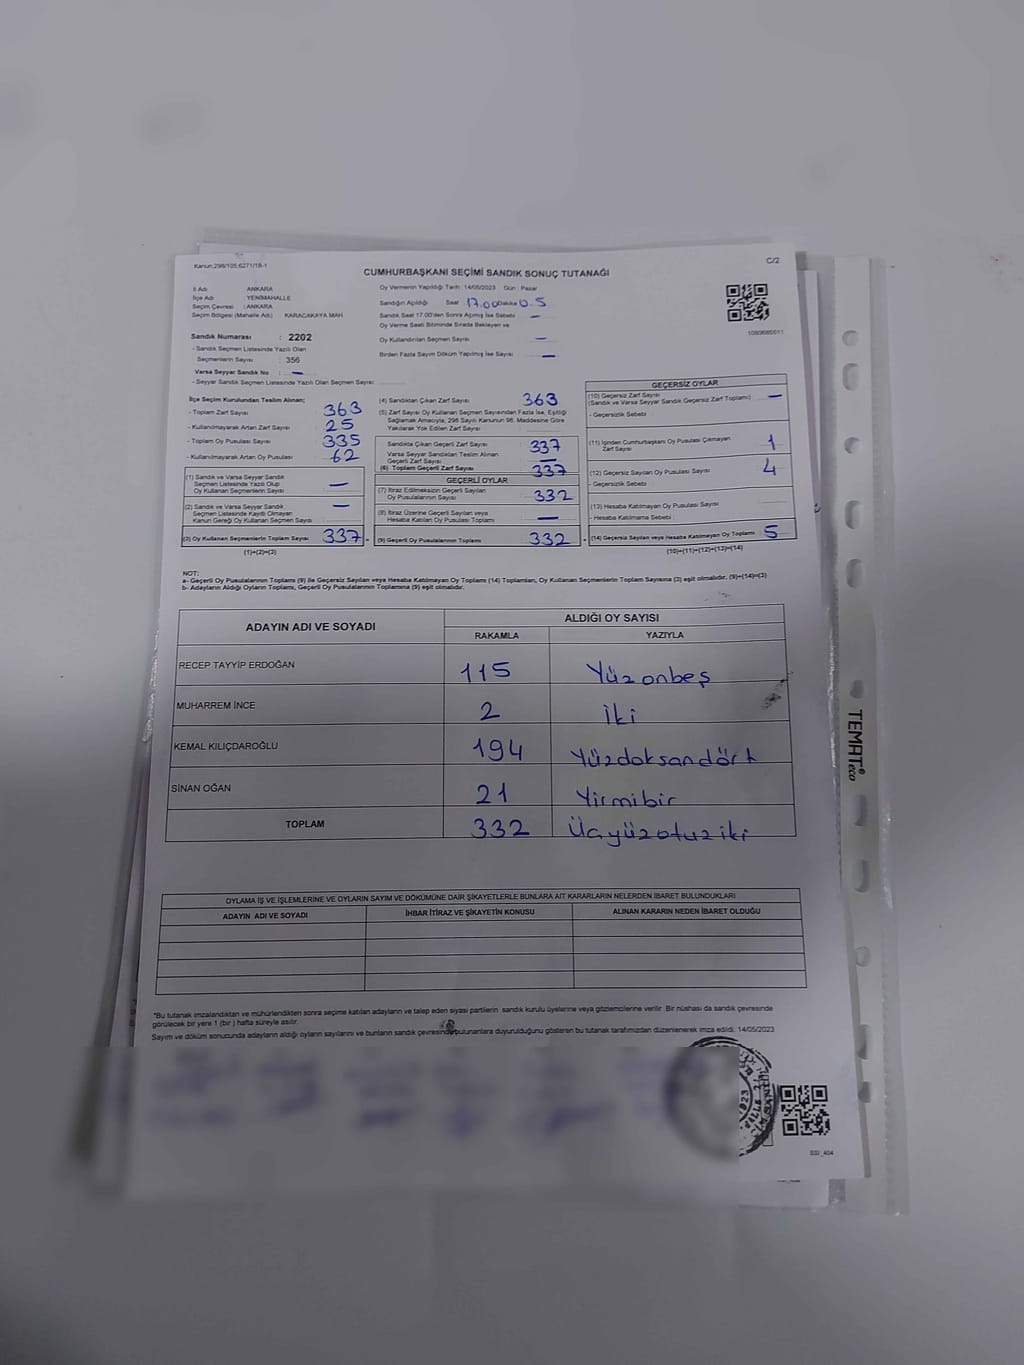 Kanun;298/105;6271/18-1
C/2
CUMHURBAŞKANI SEÇİMİ SANDIK SONUÇ TUTANAĞI
İl Adı ANKARA
İlçe Adı YENİMAHALLE
Seçim Çevresi : ANKARA
Seçim Bölgesi (Mahalle Adı) : KARACAKAYA MAH.
Sandık Numarası : 2202
- Sandık Seçmen Listesinde Yazılı Olan
Seçmenlerin Sayısı : 356
Varsa Seyyar Sandık No : —
- Seyyar Sandık Seçmen Listesinde Yazılı Olan Seçmen Sayısı:
Oy Vermenin Yapıldığı Tarih : 14/05/2023 Gün : Pazar
Sandığın Açıldığı Saat 17.00 Dakika 05
Sandık Saat 17.00'den Sonra Açılmış İse Sebebi —
Oy Verme Saati Bitiminde Sırada Bekleyen ve
Oy Kullandırılan Seçmen Sayısı —
Birden Fazla Sayım Döküm Yapılmış İse Sayısı —
1080685511
İlçe Seçim Kurulundan Teslim Alınan;
- Toplam Zarf Sayısı 363
- Kullanılmayarak Artan Zarf Sayısı 25
- Toplam Oy Pusulası Sayısı 335
- Kullanılmayarak Artan Oy Pusulası 62
(1) Sandık ve Varsa Seyyar Sandık
Seçmen Listesinde Yazılı Olup
Oy Kullanan Seçmenlerin Sayısı —
(2) Sandık ve Varsa Seyyar Sandık
Seçmen Listesinde Kayıtlı Olmayan
Kanun Gereği Oy Kullanan Seçmen Sayısı —
(3) Oy Kullanan Seçmenlerin Toplam Sayısı 337
(1)+(2)=(3)
(4) Sandıktan Çıkan Zarf Sayısı 363
(5) Zarf Sayısı Oy Kullanan Seçmen Sayısından Fazla İse, Eşitliği
Sağlamak Amacıyla, 298 Sayılı Kanunun 98. Maddesine Göre
Yakılarak Yok Edilen Zarf Sayısı
Sandıkta Çıkan Geçerli Zarf Sayısı 337
Varsa Seyyar Sandıktan Teslim Alınan
Geçerli Zarf Sayısı —
(6) Toplam Geçerli Zarf Sayısı 337
GEÇERLİ OYLAR
(7) İtiraz Edilmeksizin Geçerli Sayılan
Oy Pusulalarının Sayısı 332
(8) İtiraz Üzerine Geçerli Sayılan veya
Hesaba Katılan Oy Pusulası Toplamı —
(9) Geçerli Oy Pusulalarının Toplamı 332
GEÇERSİZ OYLAR
(10) Geçersiz Zarf Sayısı —
(Sandık ve Varsa Seyyar Sandık Geçersiz Zarf Toplamı)
- Geçersizlik Sebebi :
(11) İçinden Cumhurbaşkanı Oy Pusulası Çıkmayan
Zarf Sayısı 1
(12) Geçersiz Sayılan Oy Pusulası Sayısı 4
- Geçersizlik Sebebi :
(13) Hesaba Katılmayan Oy Pusulası Sayısı
- Hesaba Katılmama Sebebi :
(14) Geçersiz Sayılan veya Hesaba Katılmayan Oy Toplamı 5
(10)+(11)+(12)+(13)=(14)
NOT:
a- Geçerli Oy Pusulalarının Toplamı (9) ile Geçersiz Sayılan veya Hesaba Katılmayan Oy Toplamı (14) Toplamları, Oy Kullanan Seçmenlerin Toplam Sayısına (3) eşit olmalıdır. (9)+(14)=(3)
b- Adayların Aldığı Oyların Toplamı, Geçerli Oy Pusulalarının Toplamına (9) eşit olmalıdır.
ADAYIN ADI VE SOYADI
ALDIĞI OY SAYISI
RAKAMLA YAZIYLA
RECEP TAYYİP ERDOĞAN 115 Yüzonbeş
MUHARREM İNCE 2 İki
KEMAL KILIÇDAROĞLU 194 Yüzdoksandört
SİNAN OĞAN 21 Yirmibir
TOPLAM 332 Üçyüzotuziki
OYLAMA İŞ VE İŞLEMLERİNE VE OYLARIN SAYIM VE DÖKÜMÜNE DAİR ŞİKAYETLERLE BUNLARA AİT KARARLARIN NELERDEN İBARET BULUNDUKLARI
ADAYIN ADI VE SOYADI İHBAR İTİRAZ VE ŞİKAYETİN KONUSU ALINAN KARARIN NEDEN İBARET OLDUĞU
*Bu tutanak imzalandıktan ve mühürlendikten sonra seçime katılan adayların ve talep eden siyasi partilerin sandık kurulu üyelerine veya gözlemcilerine verilir. Bir nüshası da sandık çevresinde
görülecek bir yere 1 (bir) hafta süreyle asılır.
Sayım ve döküm sonucunda adayların aldığı oyların sayılarını ve bunların sandık çevresinde bulunanlara duyurulduğunu gösteren bu tutanak tarafımızdan düzenlenerek imza edildi. 14/05/2023
SSI_404
TEMAT® eco